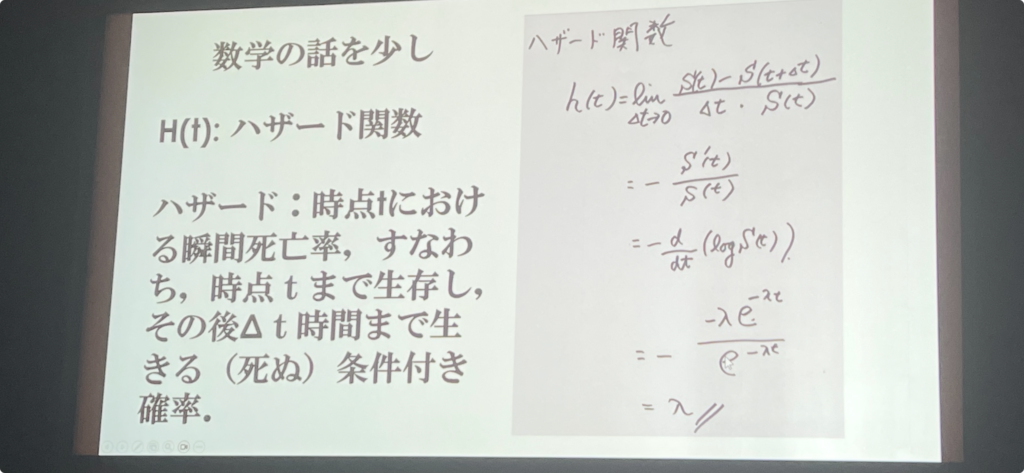 数学の話を少し
H(t): ハザード関数
ハザード：時点tにおけ
る瞬間死亡率，すなわ
ち，時点ｔまで生存し，
その後Δｔ時間まで生
きる（死ぬ）条件付き
確率．
ハザード関数
h(t)=lim Δt→0 S(t)-S(t+Δt) / Δt・S(t)
= - S'(t) / S(t)
= - d/dt (log S(t))
= - -λe^-λt / e^-λt
= λ //